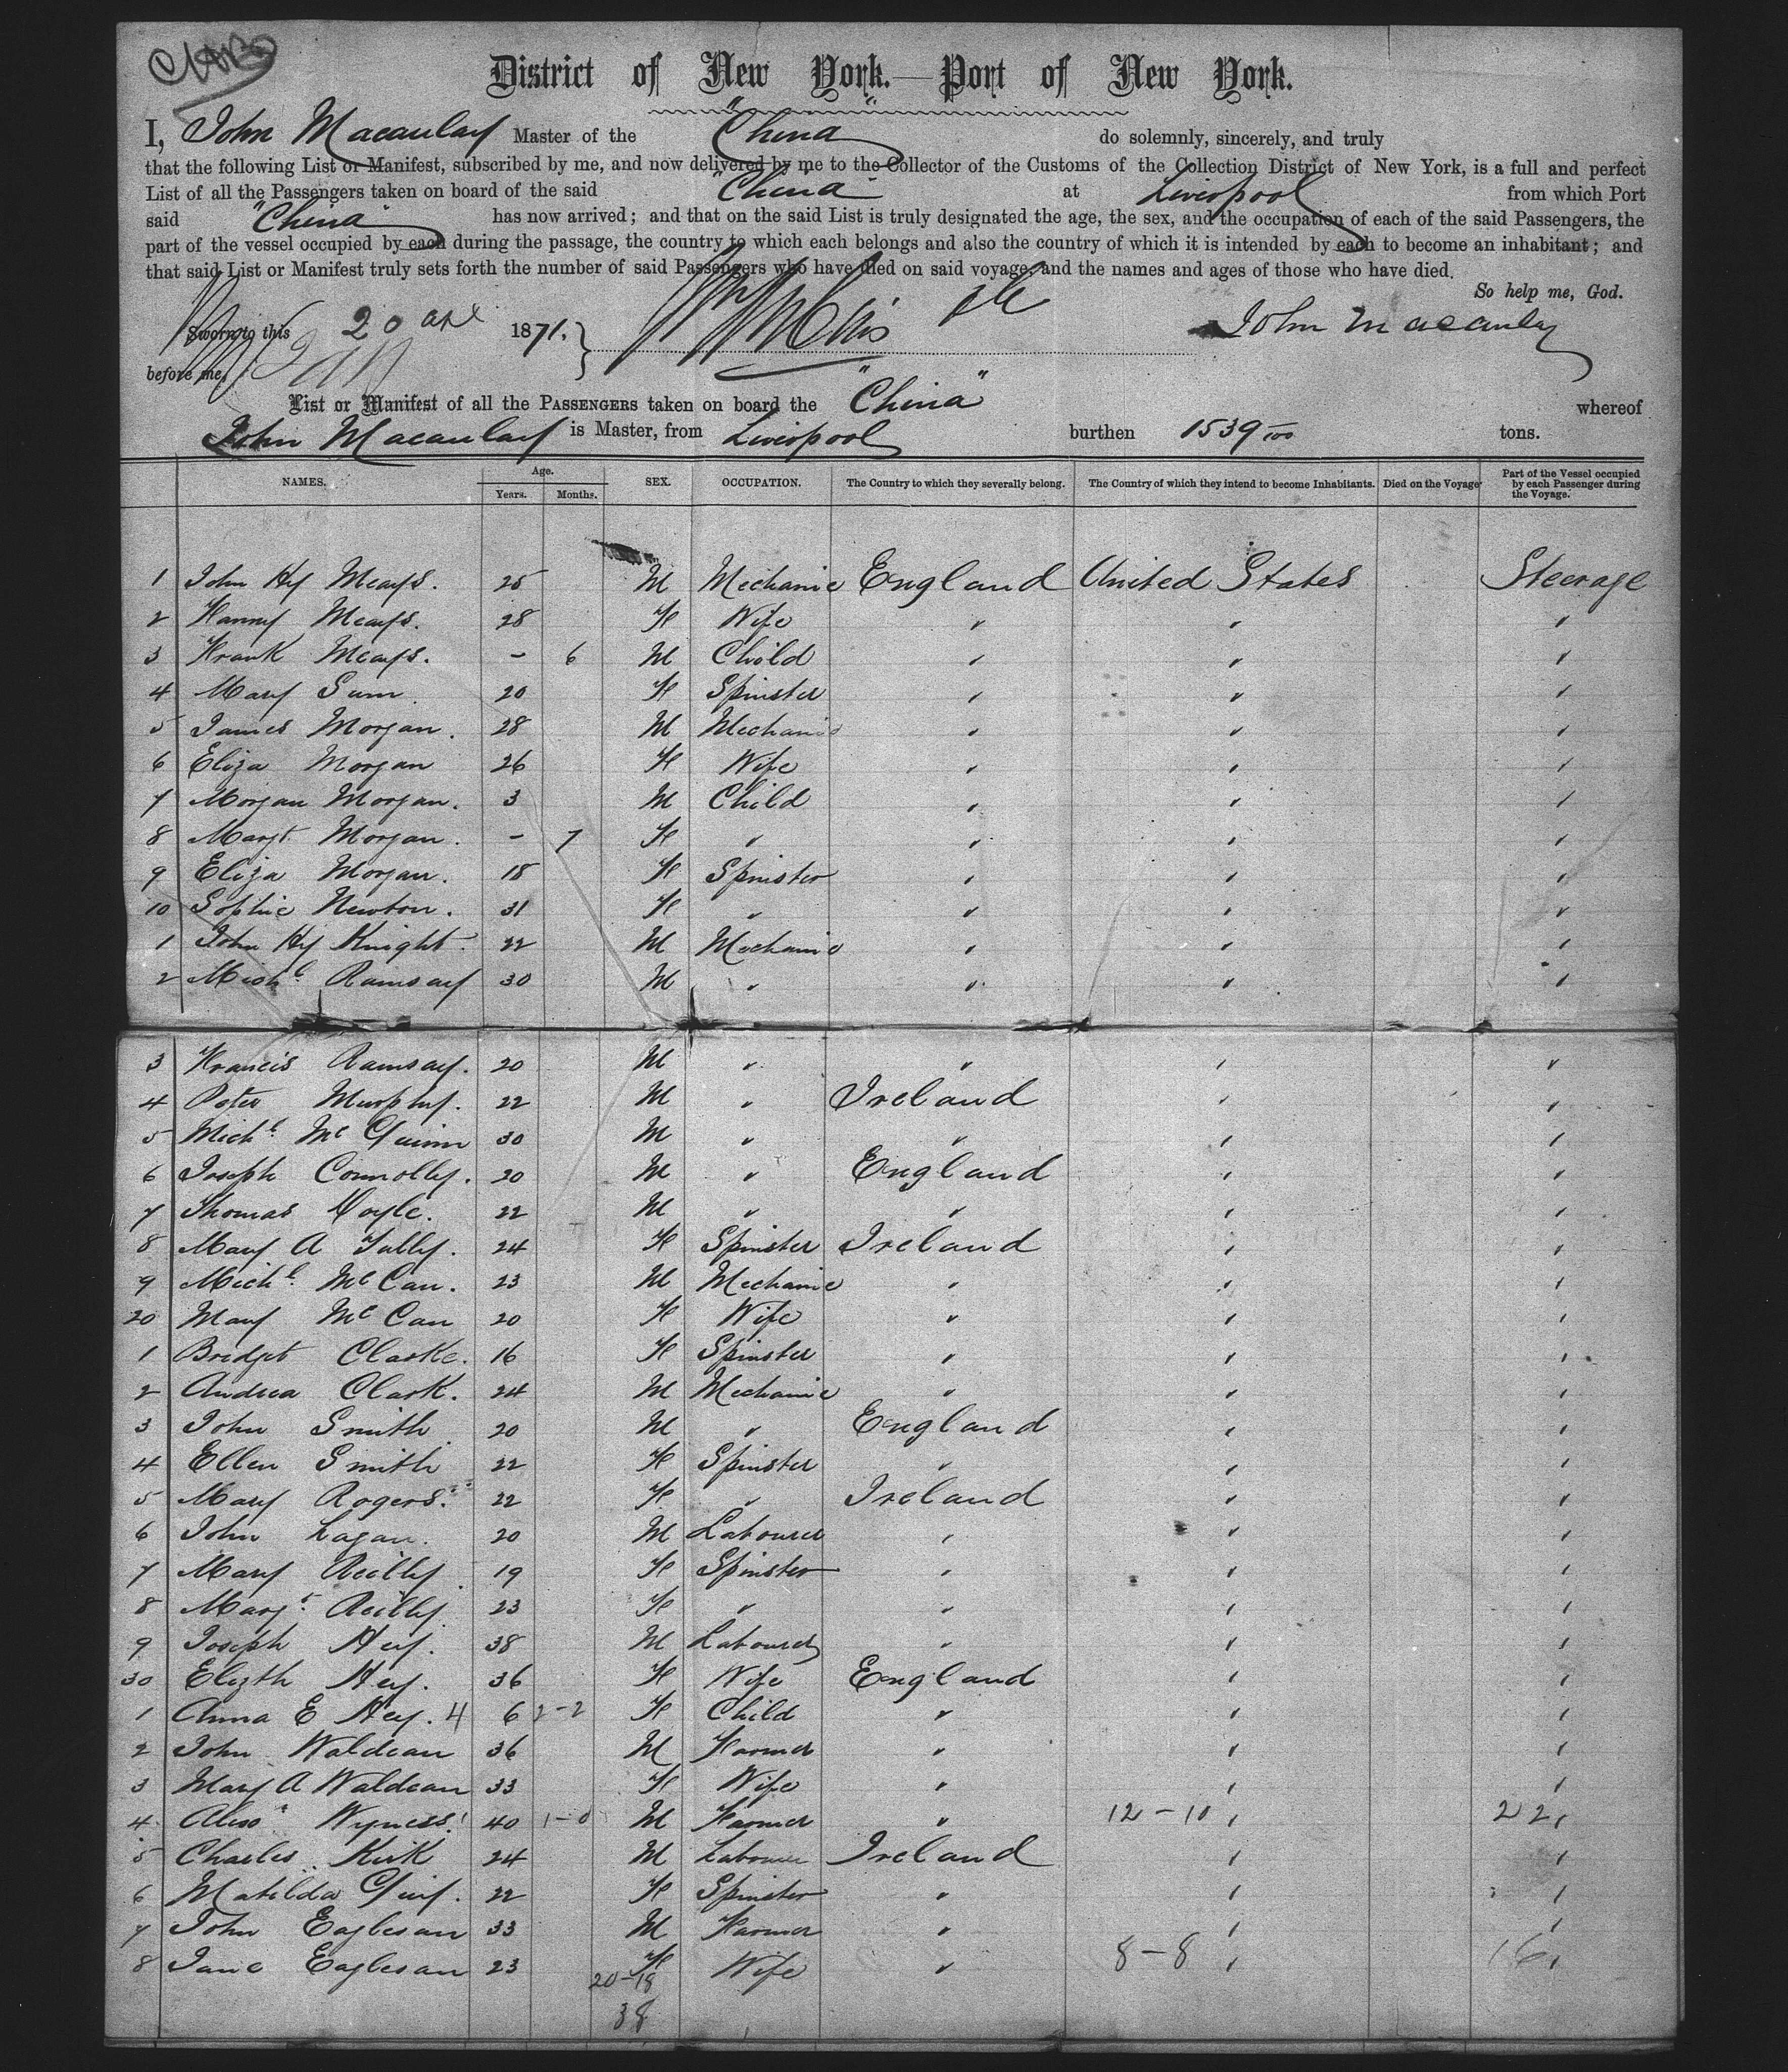 District of New York.—Port of New York.
I, John Macaulay Master of the "China" do solemnly, sincerely, and truly
that the following List or Manifest, subscribed by me, and now delivered by me to the Collector of the Customs of the Collection District of New York, is a full and perfect
List of all the Passengers taken on board of the said "China" at Liverpool from which Port
said "China" has now arrived; and that on the said List is truly designated the age, the sex, and the occupation of each of the said Passengers, the
part of the vessel occupied by each during the passage, the country to which each belongs and also the country of which it is intended by each to become an inhabitant; and
that said List or Manifest truly sets forth the number of said Passengers who have died on said voyage, and the names and ages of those who have died.
So help me, God.
Sworn to this 20 apl 1871. John Macaulay
before me,
List or Manifest of all the PASSENGERS taken on board the "China" whereof
John Macaulay is Master, from Liverpool burthen 1539 tons.
NAMES. Age. Years. Months. SEX. OCCUPATION. The Country to which they severally belong. The Country of which they intend to become Inhabitants. Died on the Voyage Part of the Vessel occupied by each Passenger during the Voyage.
1 John Hy Meays. 25 M Mechanic England United States Steerage
2 Fanny Meays. 28 F Wife " " "
3 Frank Meays. - 6 M Child " " "
4 Mary Sum 20 F Spinster " " "
5 James Morgan. 28 M Mechanic " " "
6 Eliza Morgan 26 F Wife " " "
7 Morgan Morgan. 3 M Child " " "
8 Margt. Morgan. - 7 F " " " "
9 Eliza Morgan. 18 F Spinster " " "
10 Sophie Newton. 31 F " " " "
1 John Hy Knight. 22 M Mechanic " " "
2 Michl. Ramsay 30 M " " " "
3 Francis Ramsay. 20 M " " " "
4 Peter Murphy. 22 M " Ireland " "
5 Michl. Mc Quinn 30 M " " " "
6 Joseph Connolly. 20 M " England " "
7 Thomas 22 M " " " "
8 Mary A Tully. 24 F Spinster Ireland " "
9 Michl. Mc Can. 23 M Mechanic " " "
20 Mary Mc Can 20 F Wife " " "
1 Bridget Clarke. 16 F Spinster " " "
2 Andrew Clark. 24 M Mechanic " " "
3 John Smith 20 M " England " "
4 Ellen Smith 22 F Spinster " " "
5 Mary Rogers. 22 F " Ireland " "
6 John Lagan. 20 M Labourer " " "
7 Mary Reilly 19 F Spinster " " "
8 Margt. Reilly 23 F " " " "
9 Joseph Hey. 38 M Labourer " " "
30 Elizth Hey. 36 F Wife England " "
1 Anna E Hey. 4 6 2-2 F Child " " "
2 John Waldean 36 M Farmer " " "
3 Mary A Waldean 33 F Wife " " "
4 Alexr Wyness. 40 1-0 M Farmer " 12-10 " 22 "
5 Charles Kirk 24 M Labourer Ireland " "
6 Matilda 22 F Spinster " " "
7 John Eaglesan 33 M Farmer " " "
8 Jane Eaglesan 23 F Wife " 8-8 " 16 "
20-18
38